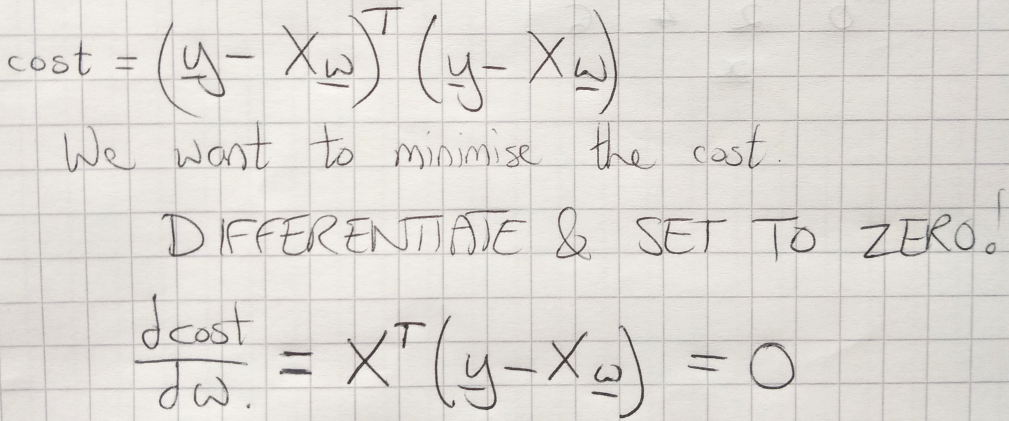 cost = (y - Xw)^T (y - Xw)
We want to minimise the cost.
DIFFERENTIATE & SET TO ZERO!
dcost/dw. = X^T (y - Xw) = 0